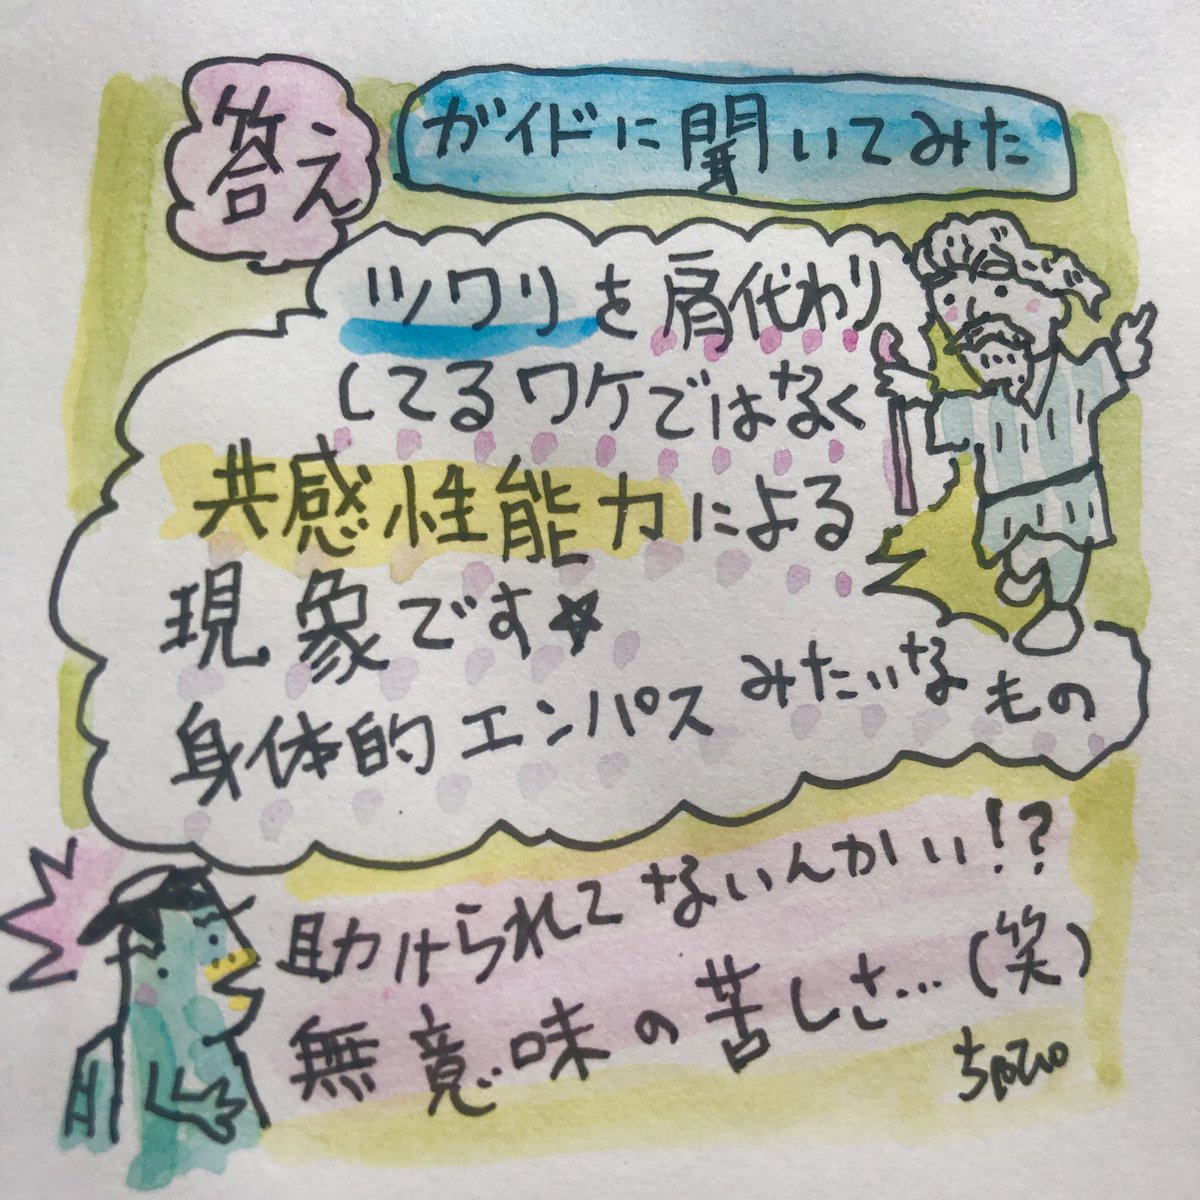 答え
ガイドに聞いてみた
ツワリを肩代わり
してるワケではなく
共感性能力による
現象です☆
身体的エンパスみたいなもの
助けられてないんかい!?
無意味の苦しさ…(笑)